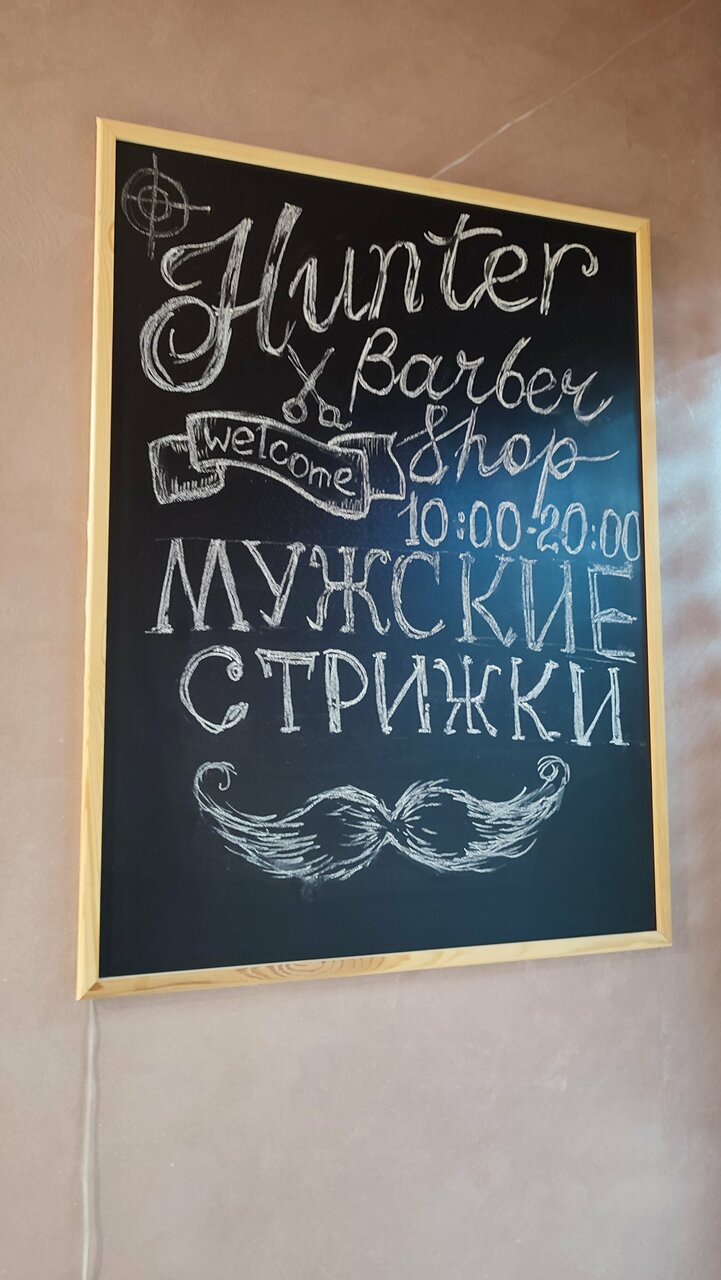 Hunter
Barber
Shop
welcome
10:00-20:00
МУЖСКИЕ
СТРИЖКИ